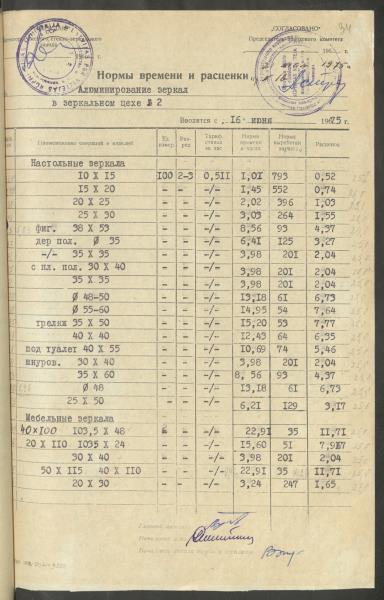 „СОГЛАСОВАНО"
34
Председатель комитета
Нормы времени и расценки
Алюминирование зеркал
в зеркальном цехе № 2
Вводятся с „ 16 июня 1975 г.
Наименование операций и изделий Ед. измер. Раз-ряд Тариф. ставка за час Норма времени в часах Норма выработки Расценки
Настольные зеркала
10 X 15 100 2-3 0,511 1,01 793 0,52
15 X 20 - - -/- 1,45 552 0,74
20 X 25 - - -/- 2,02 396 1,03
25 X 30 - - -/- 3,03 264 1,55
фиг. 38 X 53 - - -/- 8,56 93 4,37
дер пол. Ø 35 - - -/- 6,41 125 3,27
-/- 35 X 35 - - -/- 3,98 201 2,04
с нл. пол. 30 X 40 - - -/- 3,98 201 2,04
35 X 35 - - -/- 3,98 201 2,04
Ø 48-50 - - -/- 13,18 61 6,73
Ø 55-60 - - -/- 14,95 54 7,64
трелки 35 X 50 - - -/- 15,20 53 7,77
40 X 40 - - -/- 12,43 64 6,35
под туалет 40 X 55 - - -/- 10,69 74 5,46
шнуров. 30 X 40 - - -/- 3,98 201 2,04
35 X 60 - - -/- 8,56 93 4,37
Ø 48 - - -/- 13,18 61 6,73
25 X 50 - - -/- 6,21 129 3,17
Мебельные зеркала
40×100 103,5 X 48 - - -/- 22,91 35 11,71
20 X 110 1035 X 24 - - -/- 15,60 51 7,97
30 X 40 - - -/- 3,98 201 2,04
50 X 115 40 X 110 - - -/- 22,91 35 11,71
20 X 30 - - -/- 3,24 247 1,65